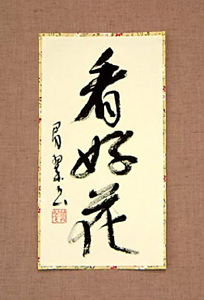 看好花